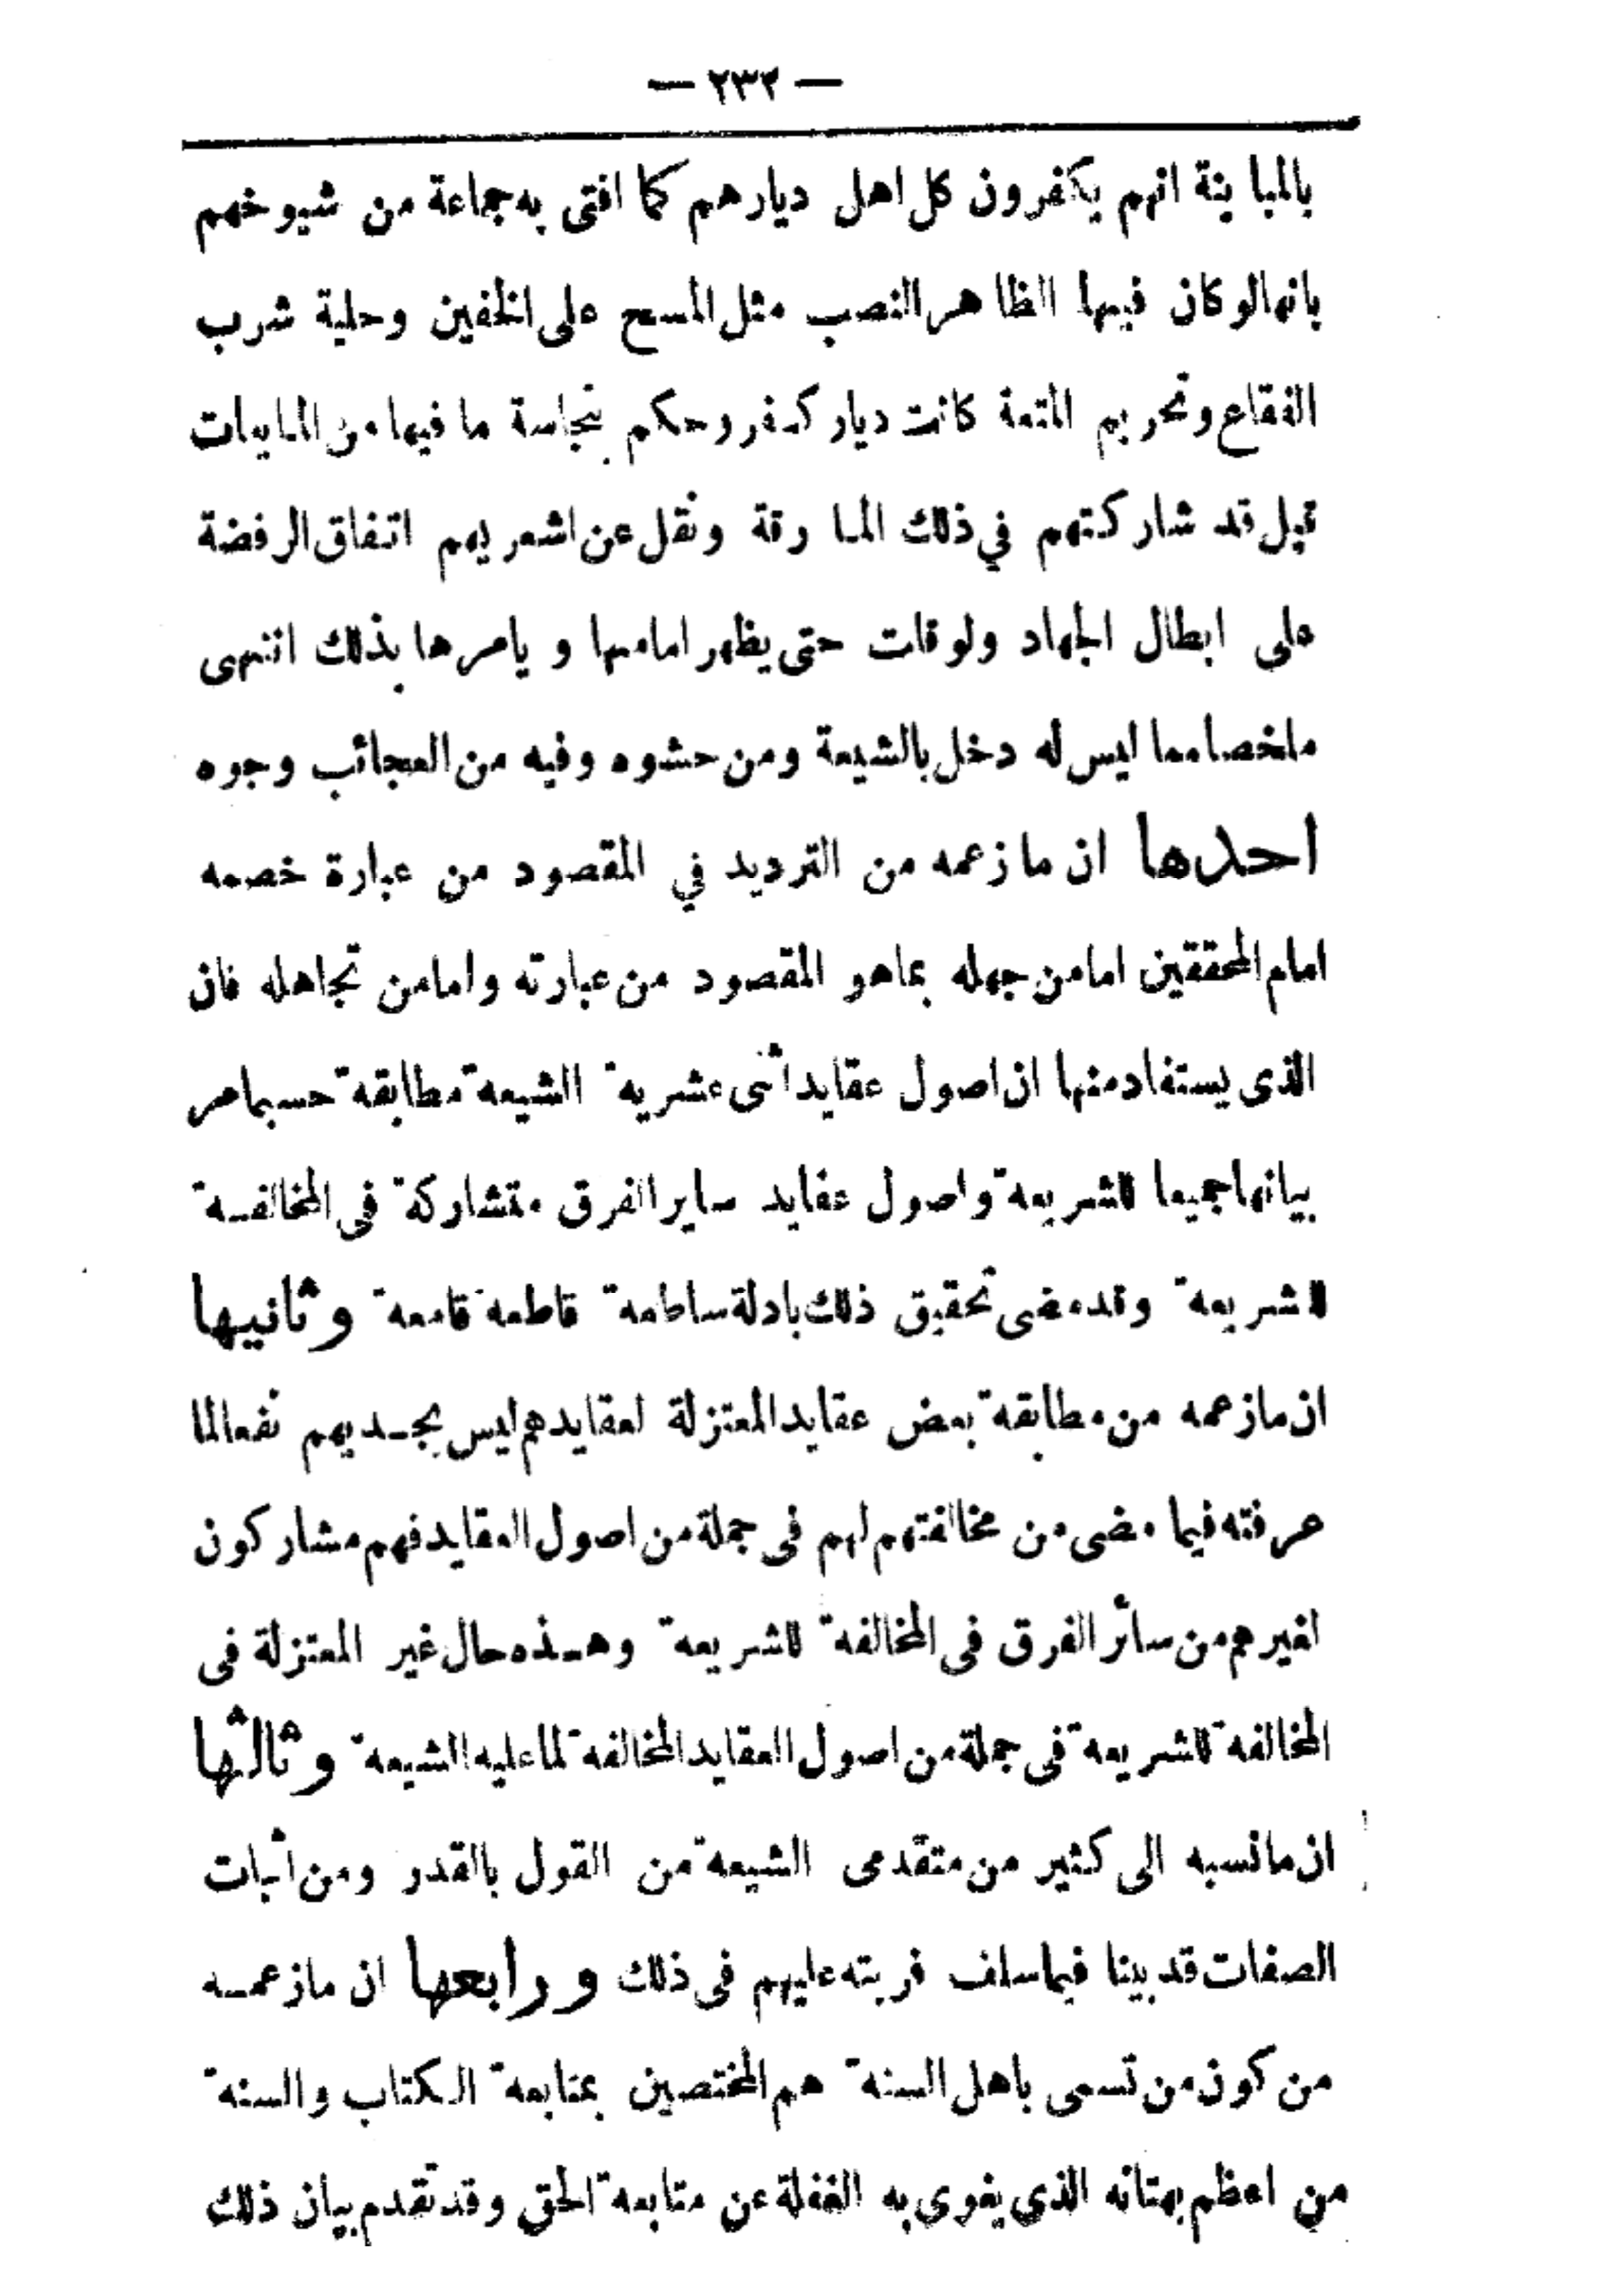 — ٢٣٢ —
بالمباينة انهم يكفرون كل اهل ديارهم كما افتى به جماعة من شيوخهم
بانها لو كان فيها الظاهر النصب مثل المسح على الخفين وحلية شرب
الفقاع وتحريم المتعة كانت ديار كفر وحكم بنجاسة ما فيها من المايعات
قيل قد شاركتهم في ذلك المارقة ونقل عن اشعريهم اتفاق الرفضة
على ابطال الجهاد ولو قات حتى يظهر امامها و يامرها بذلك انتهى
ملخصا مما ليس له دخل بالشيعة ومن حشوه وفيه من العجائب وجوه
احدها ان ما زعمه من الترديد في المقصود من عبارة خصمه
امام المحققين اما من جهله بما هو المقصود من عبارته واما من تجاهله فان
الذى يستفاد منها ان اصول عقايد اثنى عشرية الشيعة مطابقة حسبما مر
بيانها جميعا للشريعة واصول عقايد ساير الفرق متشاركة فى المخالفة
للشريعة وقد مضى تحقيق ذلك بادلة ساطعة قاطعة قامعة وثانيها
ان ما زعمه من مطابقة بعض عقايد المعتزلة لعقايدهم ليس بمجديهم نفعا لما
عرفته فيما مضى من مخالفتهم لهم فى جملة من اصول العقايد فهم مشاركون
لغيرهم من سائر الفرق فى المخالفة للشريعة وهذه حال غير المعتزلة فى
المخالفة للشريعة فى جملة من اصول العقايد المخالفة لما عليه الشيعة وثالثها
ان ما نسبه الى كثير من متقدمى الشيعة من القول بالقدر ومن اثبات
الصفات قد بينا فيما سلف فريته عليهم فى ذلك ورابعها ان ما زعمه
من كون من تسمى باهل السنة هم المختصين بمتابعة الكتاب والسنة
من اعظم بهتانه الذى يغوى به الغفلة عن متابعة الحق وقد تقدم بيان ذلك